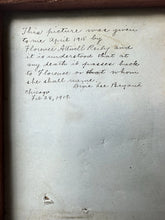 This picture was given
to me April 1918 by
Florence Adwell Realy and
it is understood that at
my death it passes back
to Florence or that whom
she shall name.
Dine Lee Bryant
Chicago
Feb 28, 1919.